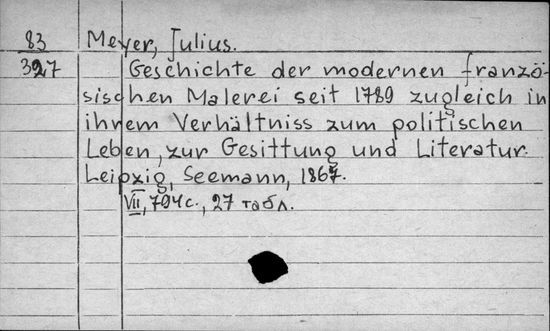 83 Meyer, Julius.
327 Geschichte der modernen franzö-
sischen Malerei seit 1789 zugleich in
ihrem Verhältniss zum politischen
Leben, zur Gesittung und Literatur.
Leipzig, Seemann, 1867.
VII, 794 с., 27 табл.